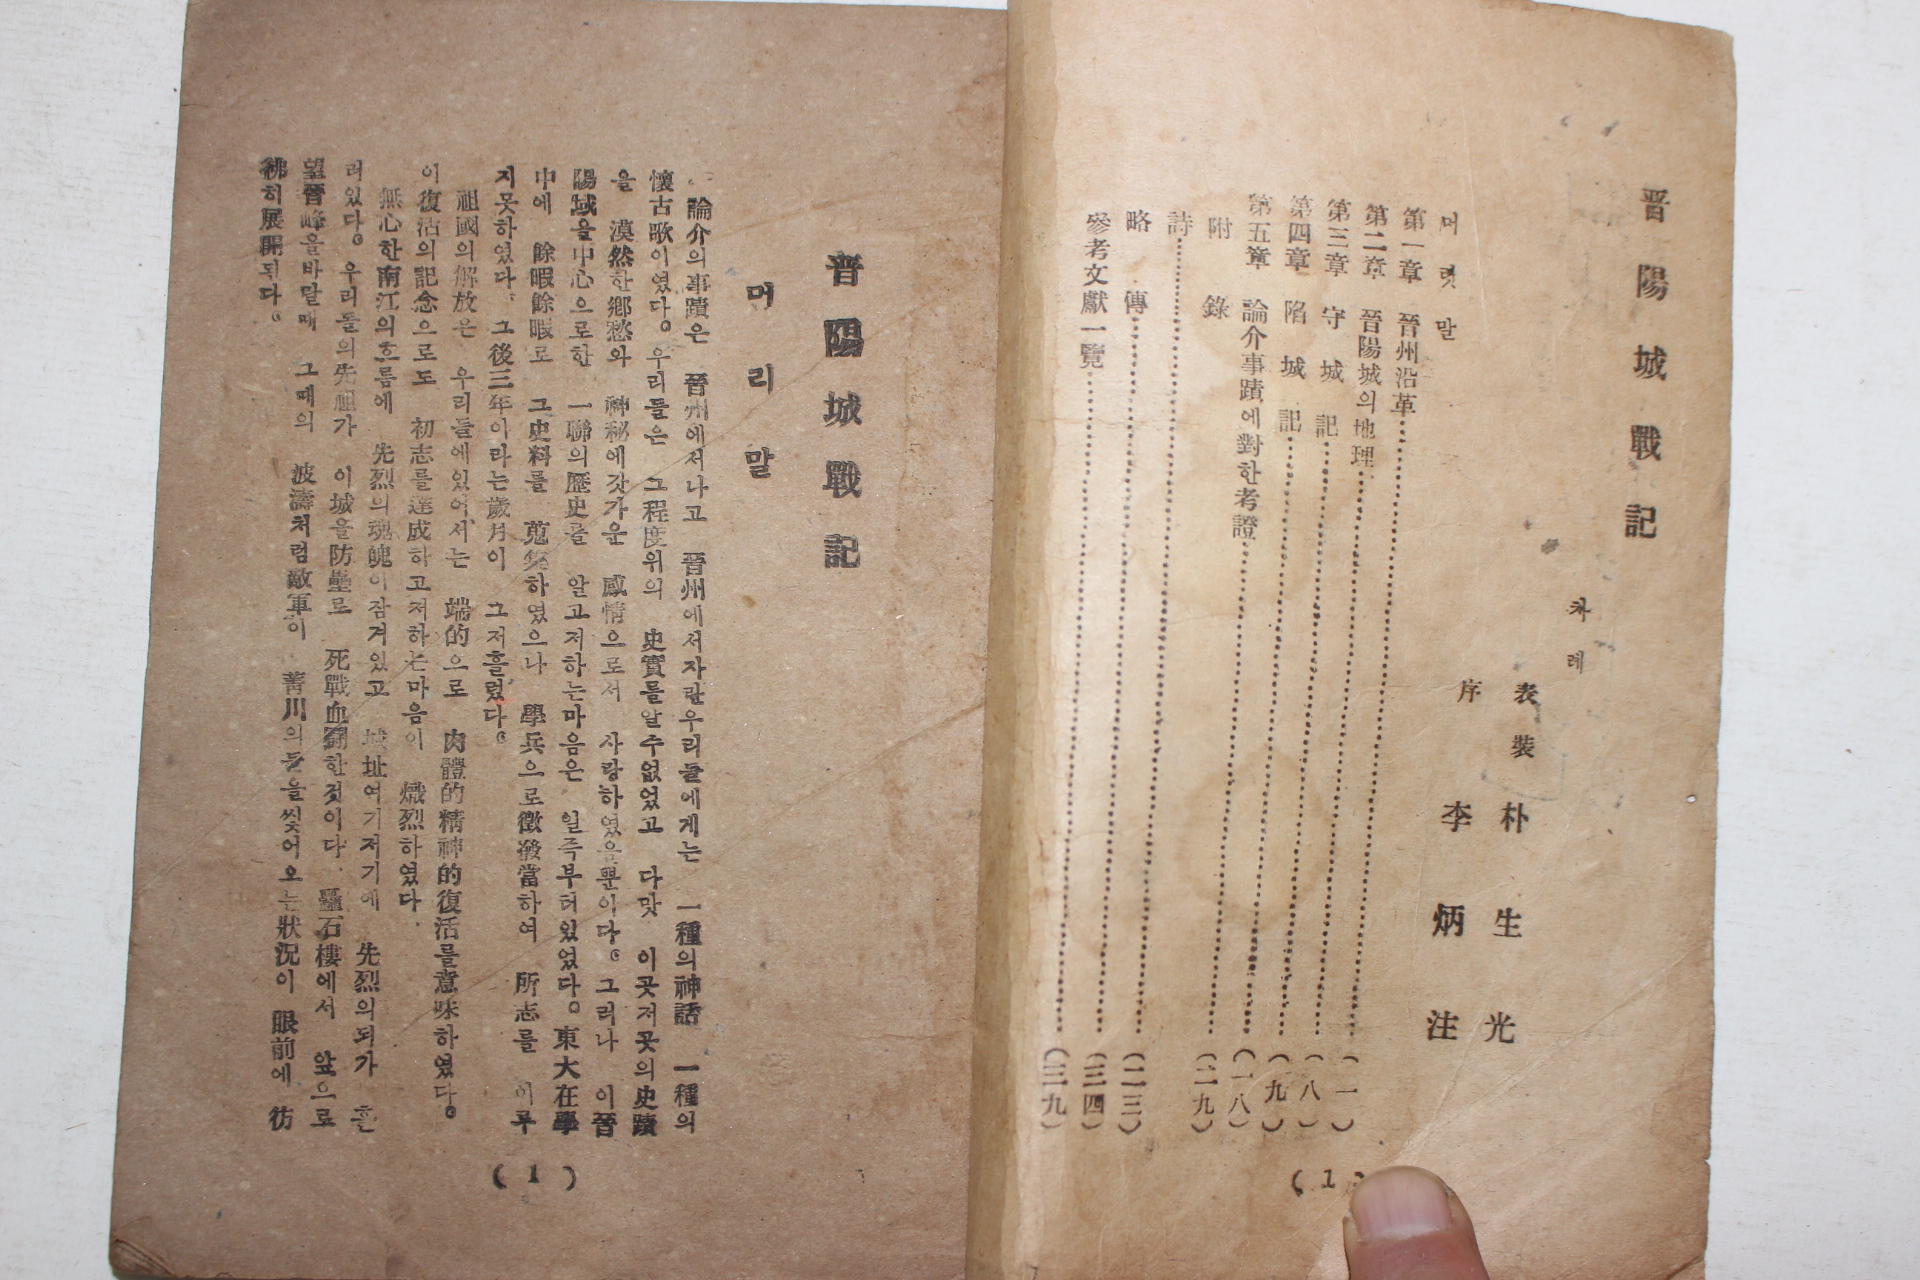 晋陽城戰記
차례
表裝 朴生光
序 李炳注
머릿말
第一章 晉州沿革……(一)
第二章 晉陽城의地理……(八)
第三章 守城記……(九)
第四章 陷城記……(一八)
第五章 論介事蹟에對한考證……(二九)
附錄
詩……(二三)
略傳……(三四)
參考文獻一覽……(三九)
(1)
晋陽城戰記
머리말
論介의事蹟은 晉州에서나고 晉州에서자란우리들에게는 一種의神話 一種의
懷古歌이였다。우리들은 그程度위의 史實를알수없었고 다맛 이곳저곳의史蹟
을 漠然한鄕愁와 神秘에갓가운 感情으로서 사랑하였을뿐이다。그러나 이晉
陽城을中心으로한 一聯의歷史를 알고저하는마음은 일즉부터있었다。東大在學
中에 餘暇餘暇로 그史料를 蒐集하였으나 學兵으로徵發當하여 所志를 이루
지못하였다. 그後三年이라는歲月이 그저흘렀다。
祖國의解放은 우리들에있어서는 端的으로 肉體的精神的復活를意味하였다。
이復活의記念으로도 初志를達成하고저하는마음이 熾烈하였다.
無心한南江의흐름에 先烈의魂魄이잠겨있고 城址여기저기에 先烈의피가 흘
러있다。우리들의先祖가 이城을防壘로 死戰血鬪한것이다. 矗石樓에서 앞으로
望晉峰을바랄때 그때의 波濤처럼敵軍이 菁川의들을씻어오는狀況이 眼前에 彷
彿히展開된다。
(1)